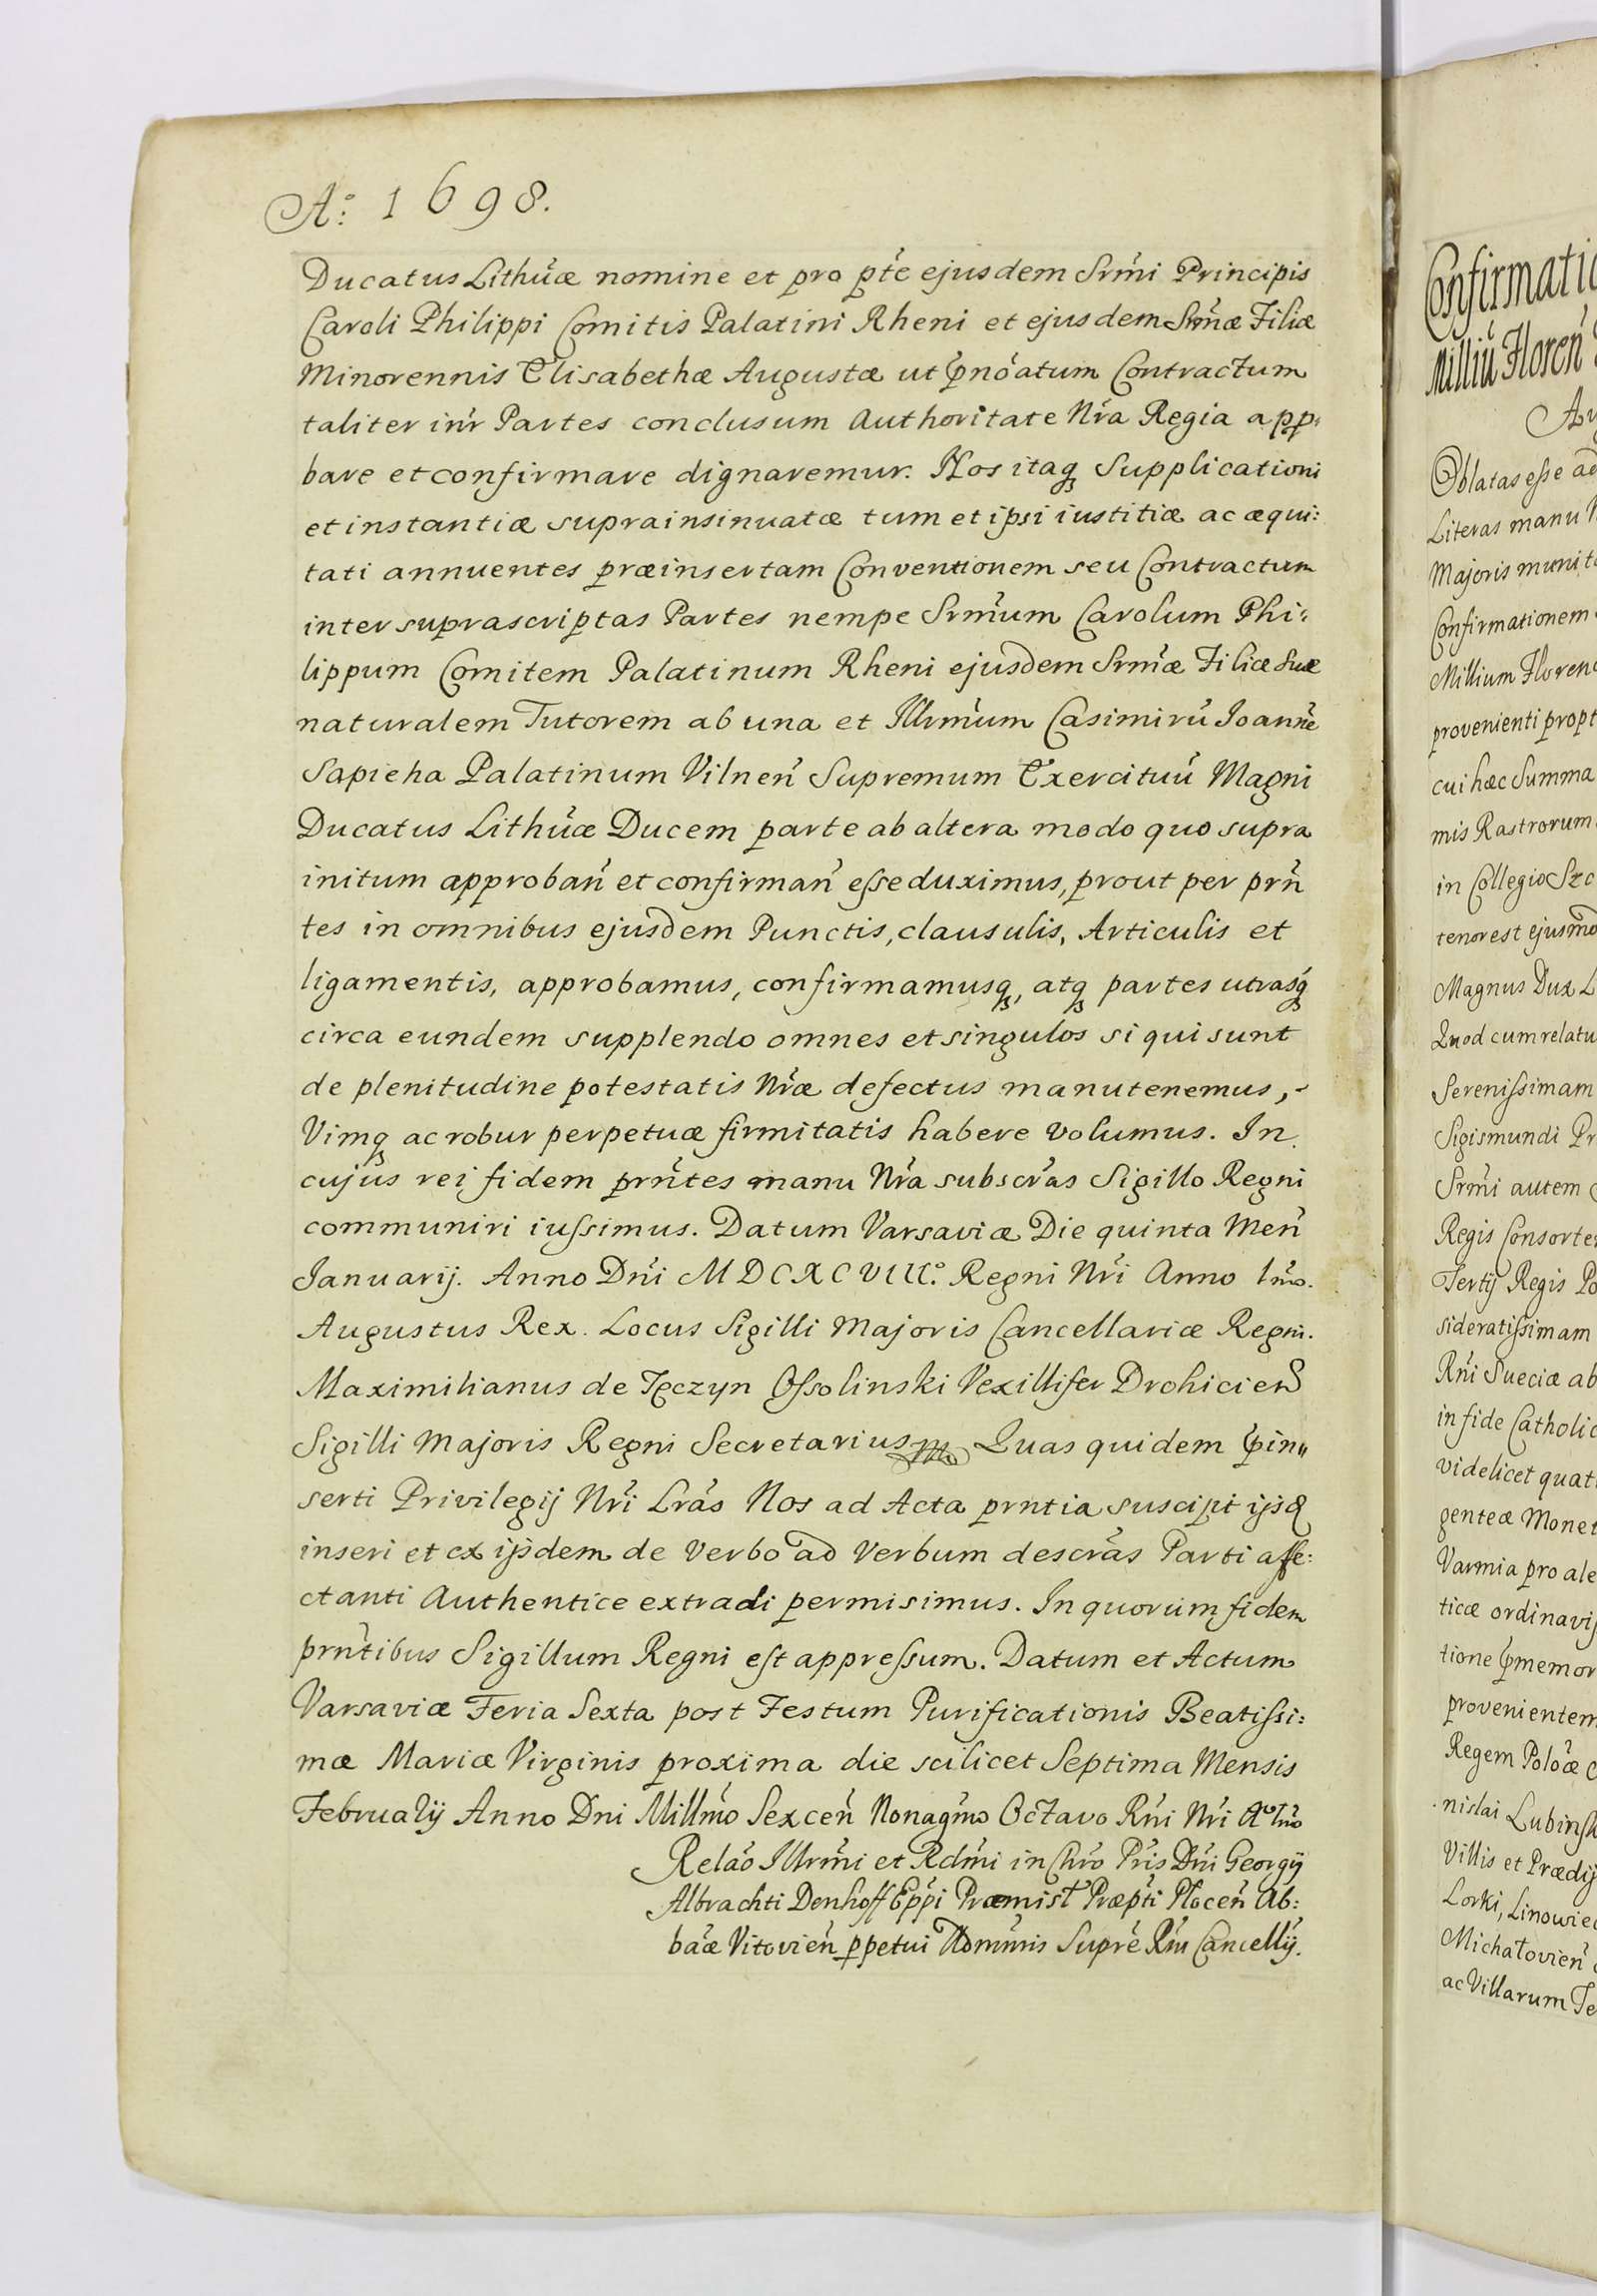 Aº: 1698.
Ducatus Lithũæ nomine et pro pte ejusdem Srmi Principis
Caroli Philippi Comitis Palatini Rheni et ejusdem Srmæ Filiæ
Minorennis Elisabethæ Augustæ ut pnoatum Contractum
taliter inr Partes conclusum Authoritate Nra Regia app:
bare et confirmare dignaremur. Nos itaq Supplicationi
et instantiæ suprainsinuatæ tum et ipsi iustitiæ ac æqui:
tati annuentes præinsertam Conventionem seu Contractum
inter suprascriptas Partes nempe Srmum Carolum Phi:
lippum Comitem Palatinum Rheni ejusdem Srmæ Filiæ Suæ
naturalem Tutorem ab una et Illrmum Casimirũ Joanne
Sapieha Palatinum Vilnen Supremum Exercituũ Magni
Ducatus Lithũæ Ducem parte ab altera modo quo supra
initum approban et confirman esse duximus, prout per prn
tes in omnibus ejusdem Punctis, clausulis, Articulis et
ligamentis, approbamus, confirmamusq, atq partes utrasq
circa eundem supplendo omnes et singulos si qui sunt
de plenitudine potestatis Nræ defectus manutenemus,
Vimq ac robur perpetuæ firmitatis habere volumus. In
cujus rei fidem prntes manu Nra subscras Sigillo Regni
communiri iussimus. Datum Varsaviæ Die quinta Men
Januarij. Anno Dni MDCXCVIII.º Regni Nri Anno 1mo.
Augustus Rex. Locus Sigilli Majoris Cancellariæ Regni.
Maximilianus de Tęczyn Ossolinski Vexillifer Drohicien
Sigilli Majoris Regni Secretarius Quas quidem pin„
serti Privilegij Nri Lras Nos ad Acta prntia suscipi ijsq
inseri et ex ijsdem de verbo ad verbum descras Parti affe:
ctanti Authentice extradi permisimus. In quorum fidem
prntibus Sigillum Regni est appressum. Datum et Actum
Varsaviæ Feria Sexta post Festum Purificationis Beatissi:
mæ Mariæ Virginis proxima die scilicet Septima Mensis
Februarij Anno Dni Millmo Sexcen Nonagmo Octavo Rni Nri Aº 1mo
Relao Illrmi et Rdmi in Chro Pris Dni Georgij
Albrachti Denhoff Eppi Præmisl Præpti Plocen Ab:
baæ Vitovien ppetui Admnis Supre Rni Cancellij.
Confirmatio
Milliũ Floren
Oblatas esse ad
Literas manu
Majoris munit
Confirmationem
Millium Floren
provenienti propt
cui hæc Summa
mis Rastrorum
in Collegio
tenor est ejusmo
Magnus Dux L
Quod cum relatu
Serenissimam
Sigismundi Pr
Srmi autem
Regis Consorte
Tertij Regis Po
sideratissimam
Rni Sueciæ ab
in fide Catholic
videlicet quat
genteæ Monet
Varmia pro ale
ticæ ordinavis
tione pmemor
provenientem
Regem Poloæ
nislai Lubinsk
Villis et Prædij
Lorki, Linowiec
Michałovien
ac Villarum Te